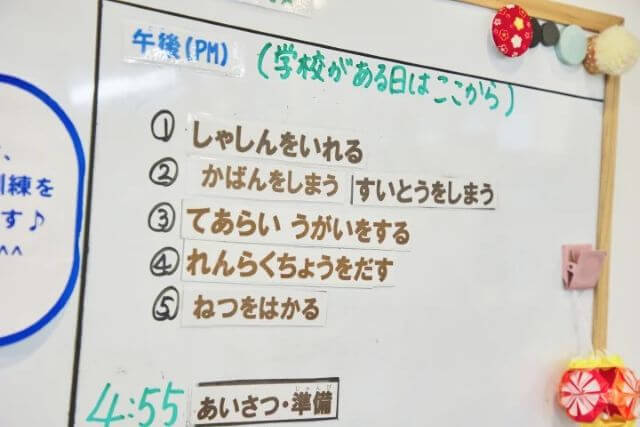 午後(PM)
(学校がある日はここから)
① しゃしんをいれる
② かばんをしまう すいとうをしまう
③ てあらい うがいをする
④ れんらくちょうをだす
⑤ ねつをはかる
4:55 あいさつ・準備
じゅんび
練を
す♪
^^